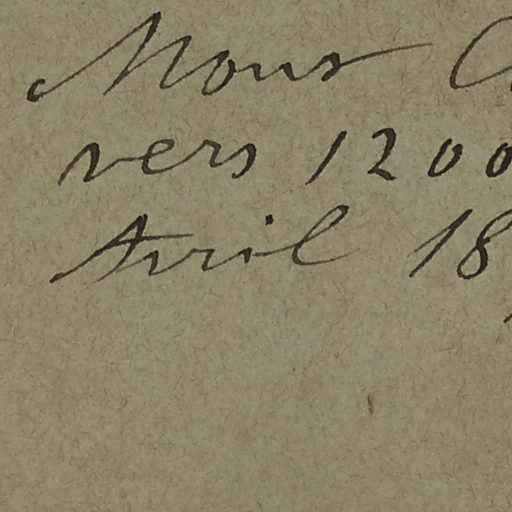 Mont
vers 1200
Avril 18